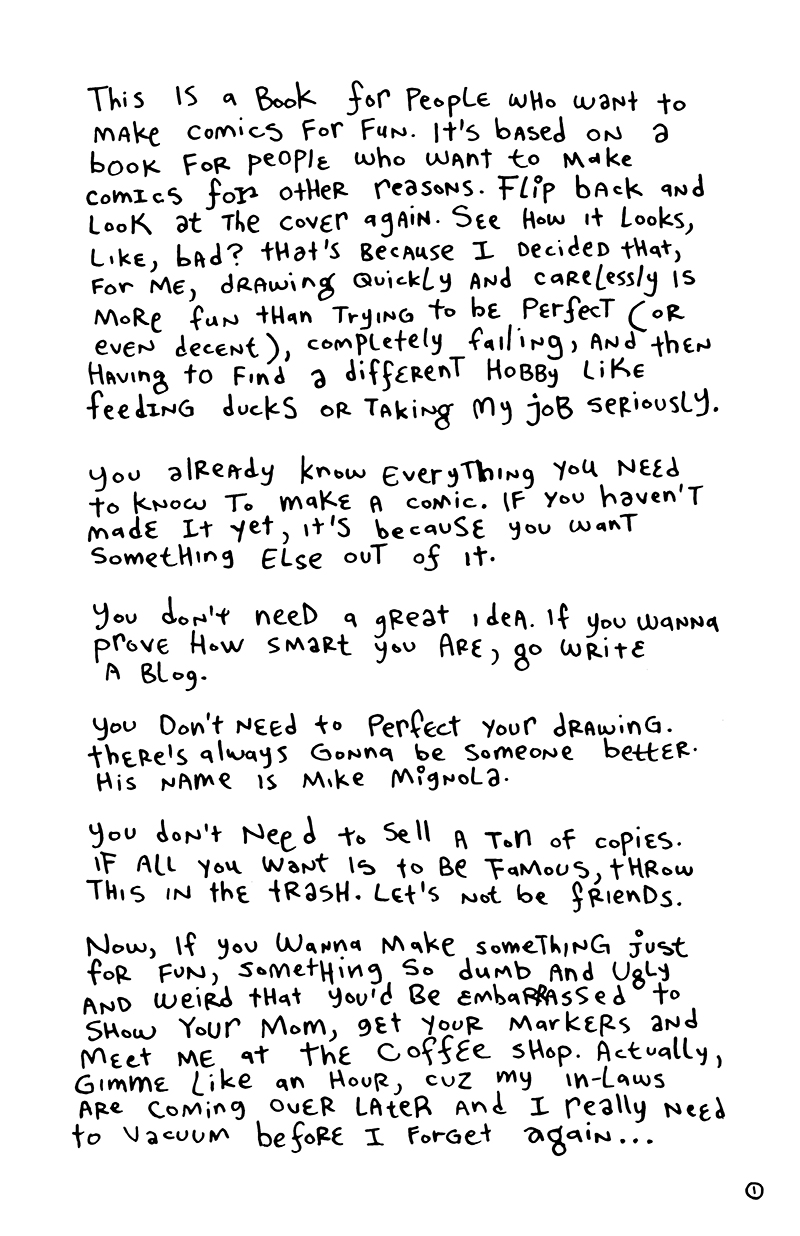 This IS a Book for PeoplE wHo waNt to
makE comics For FuN. It's bAsed oN a
bOOK FOR peOPlE who WANT to Make
comIcs foR otHeR reasoNS. FLip bAck aND
LooK at The cover agaiN. SEE How it Looks,
LikE, bAd? tHat's BecAusE I DeciDeD tHat,
For ME, dRAwing QuickLy AND caReLessly IS
MoRe fuN tHan TryiNG to bE PErfecT (oR
eveN deceNt), compLetely failing, AND theN
HAVing to FiND a diffERenT HoBBy LiKE
feeDING duckS oR TAkiNg My joB SeRiousLy.

you alReAdy know EveryThiNg You NEED
to kNow To makE A comic. IF You haven'T
madE It yet, it's becauSE you wanT
SometHing ELse ouT of it.

You doN't neeD a gReat ideA. If you waNNa
prove How smaRt you ARE, go wRitE
A BLog.

you Don't NEEd to Perfect your dRAwiNG.
thERe's always GoNNa be SomeoNE bettER.
His NAMe is Mike MigNoLa.

You doN't Need to Sell A Ton of copiES.
IF All you WaNt Is to BE FaMous, tHRow
THis IN thE tRaSH. Let's Not be fRienDs.

Now, If you WaNNa Make someThiNG just
foR FuN, SometHing So dumb AND UgLy
AND weiRd tHat you'd BE EmbaRRAssed to
SHow YouR Mom, get youR MarKERs aND
MEet ME at thE CoffEE sHop. Actually,
GimmE Like an HouR, cuz my in-Laws
ARe ComiNg ovER LAteR AND I really NeED
to Vacuum befoRE I FoRGet agaiN...

1